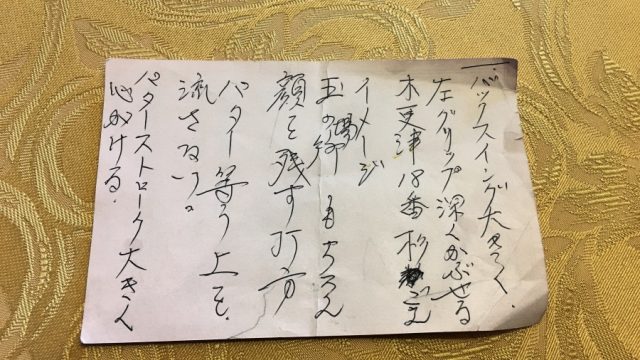 一.バックスイング大きく.
左グリップ深くかぶせる
木更津18番杉ごえ
イメージ
玉の
顔を残す打方
パター等う上を.
流さない。
パターストローク大きく
心がける.